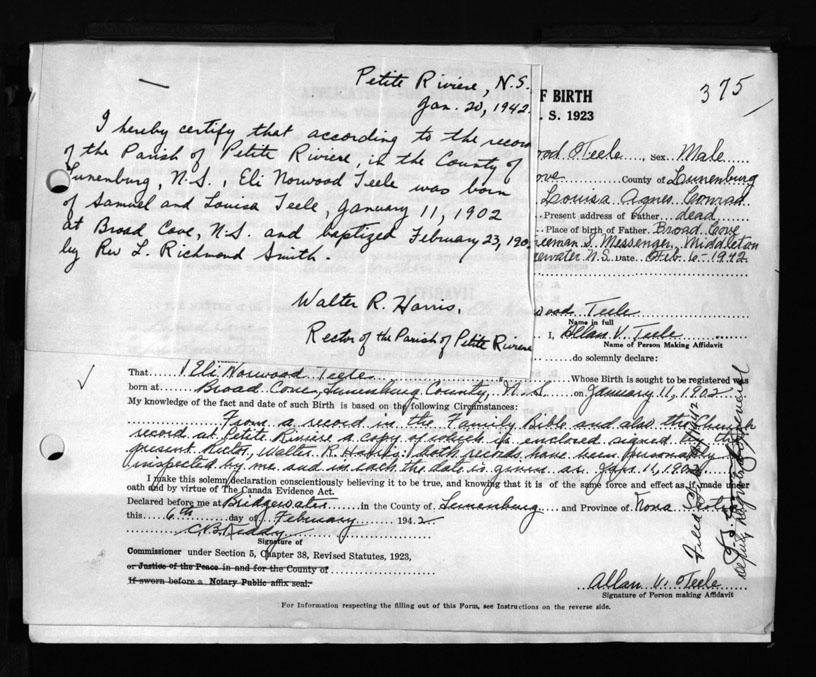 Petite Riviere, N.S.
Jan. 20, 1942.
I hereby certify that according to the recor
of the Parish of Petite Riviere, in the County of
Lunenburg, N.S., Eli Norwood Teele was born
of Samuel and Louisa Teele, January 11, 1902
at Broad Cove, N.S. and baptized February 23, 190
by Rev L. Richmond Smith.
Walter R. Harris,
Rector of the Parish of Petite Riviere
375
F BIRTH
. S. 1923
ood Teele, Sex Male
ove County of Lunenburg
Louisa Agnes Conrad
Present address of Father dead
Place of birth of Father Broad Cove
reeman S. Messenger, Middleton
ewater N.S. Date Feb. 6-1942
wood Teele
Name in full
I, Allan V. Teele
Name of Person Making Affidavit
do solemnly declare:
That Eli Norwood Teele Whose Birth is sought to be registered was
born at Broad Cove, Lunenburg County, N.S. on January 11, 1902
My knowledge of the fact and date of such Birth is based on the following Circumstances:
From a record in the Family Bible and also the Church
record at Petite Riviere a copy of which is enclosed signed by the
present Rector, Walter R. Harris; both records have been personally
inspected by me and in each the date is given as Jan 11, 1902
I make this solemn declaration conscientiously believing it to be true, and knowing that it is of the same force and effect as if made under
oath and by virtue of The Canada Evidence Act.
Declared before me at Bridgewater in the County of Lunenburg and Province of Nova Scotia
this 6th day of February 1942
Signature of
Commissioner under Section 5, Chapter 38, Revised Statutes, 1923,
or Justice of the Peace in and for the County of
If sworn before a Notary Public affix seal.
Allan V. Teele
Signature of Person making Affidavit
For Information respecting the filling out of this Form, see Instructions on the reverse side.
Deputy Registrar General